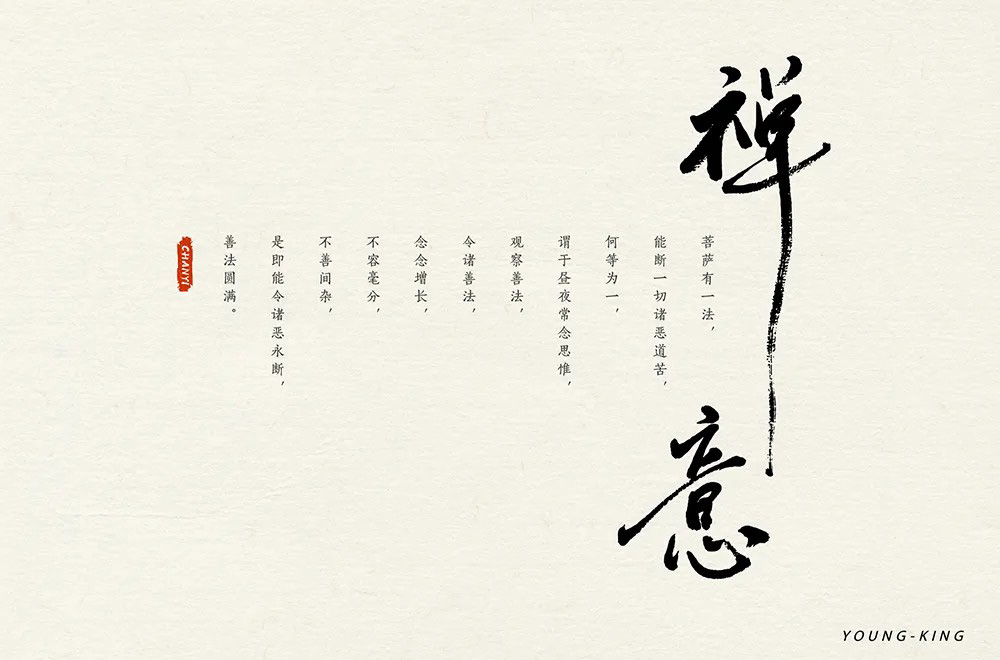 禅意
菩萨有一法，
能断一切诸恶道苦，
何等为一，
谓于昼夜常念思惟，
观察善法，
令诸善法，
念念增长，
不容毫分，
不善间杂，
是即能令诸恶永断，
善法圆满。
CHANYI
YOUNG-KING